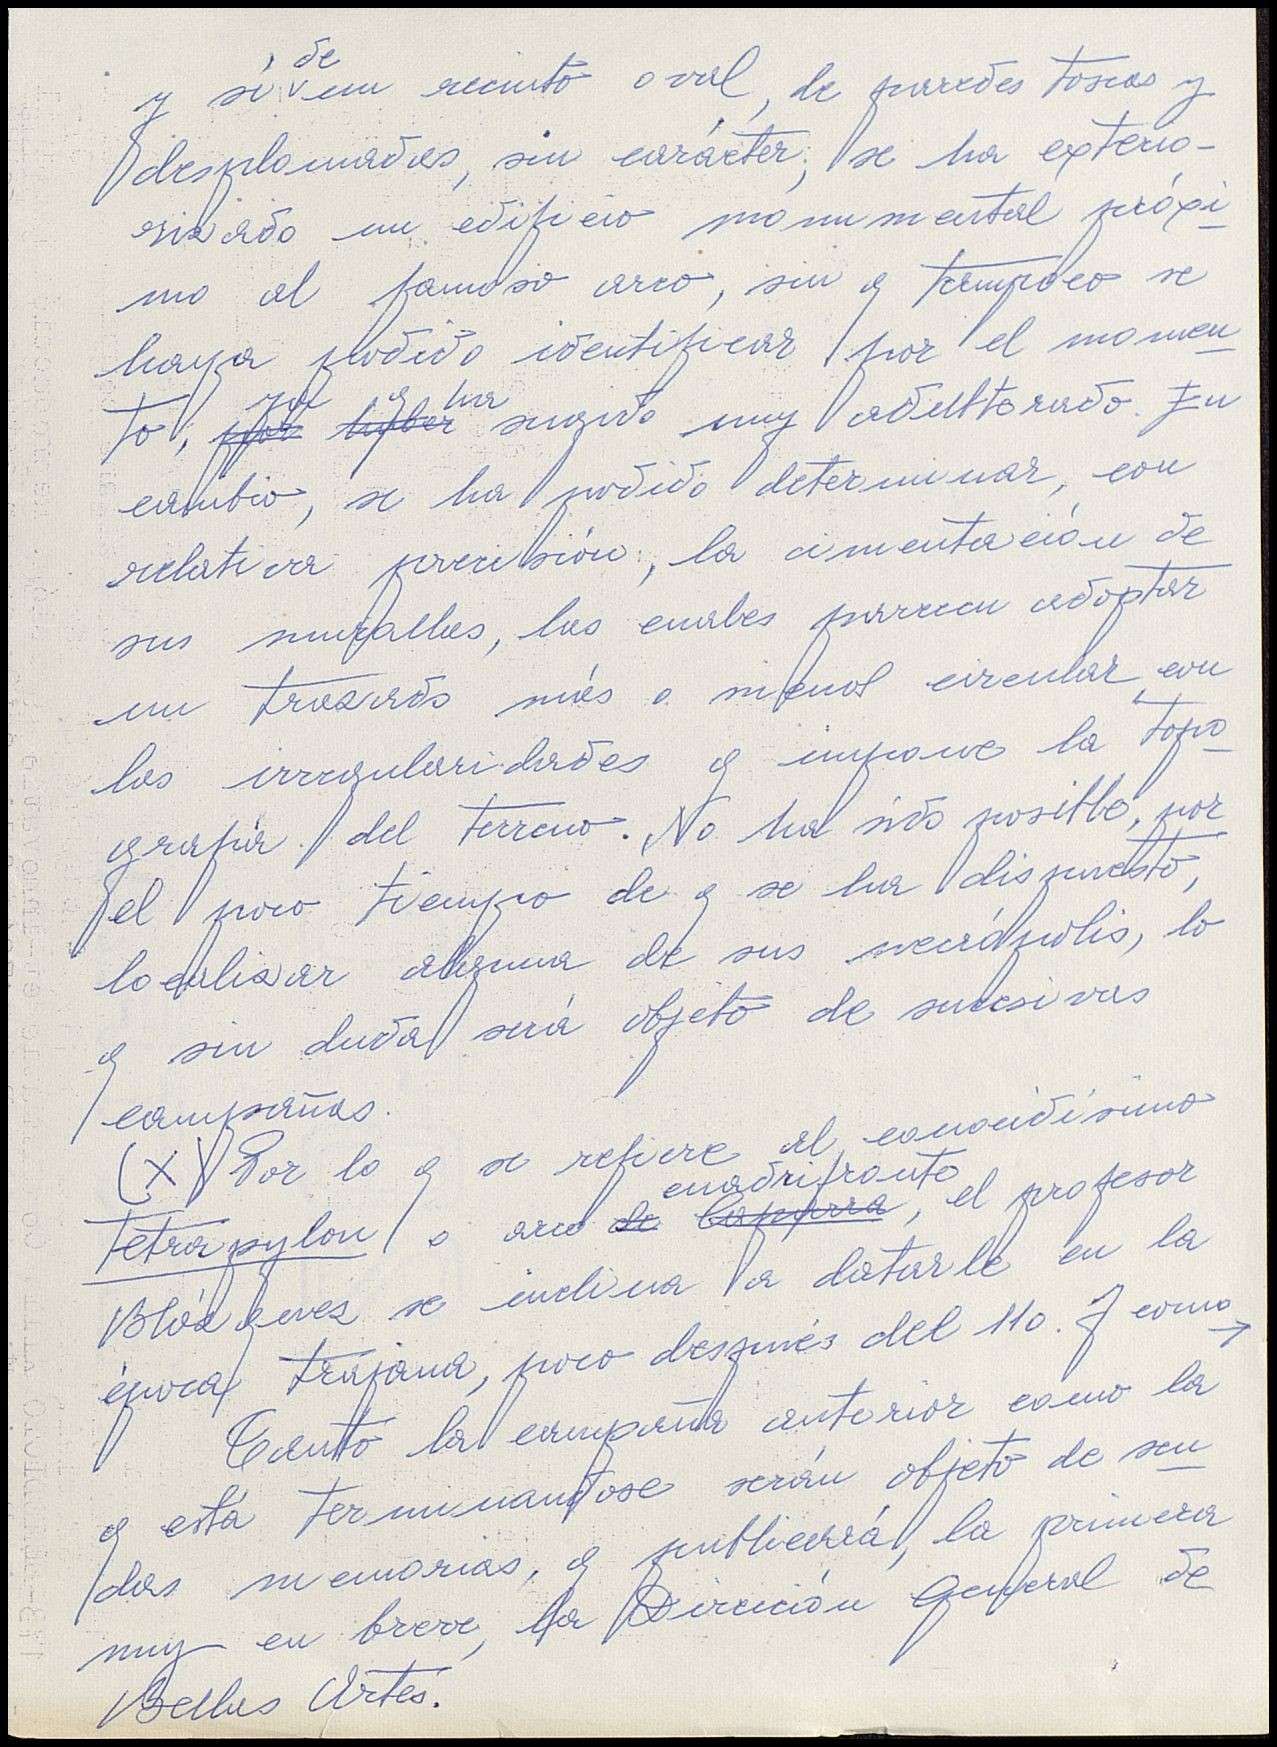 y sí, de un recinto oval, de paredes toscas y
desplomadas, sin carácter; se ha exterio-
rizado un edificio monumental próxi-
mo al famoso arco, sin q tampoco se
haya podido identificar por el momen-
to, por haber ya q ha surgido muy adulterado. En
cambio, se ha podido determinar, con
relativa precisión, la cimentación de
sus murallas, las cuales parecen adoptar
un trazado más o menos circular con
las irregularidades q impone la topo-
grafía del terreno. No ha sido posible, por
el poco tiempo de q se ha dispuesto,
localizar alguna de sus necrópolis, lo
q sin duda será objeto de sucesivas
campañas.
(X) Por lo q se refiere al conocidísimo
tetrapylon o arco de Caparra cuadrifronte, el profesor
Blázquez se inclina a datarle en la
época trajana, poco después del 110. Y como →
Tanto la campaña anterior como la
q está terminandose serán objeto de sen-
das memorias, q publicará, la primera
muy en breve, la Dirección General de
Bellas Artes.